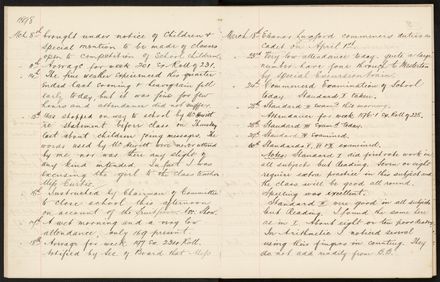 1898
Mch 8th brought under notice of Children &
special mention to be made of classes
open to competition of School children
Average for week 201 Ex. Roll of 231.
The fine weather experienced this quarter
ended last evening & heavy rain fell
early today, but it was fine for few
hours and attendance did not suffer.
Was stopped on way to school by
re statement before class on Thursday
last about children going messages, the
words used by
by me nor was there any slight of
any kind intended. In fact I was
excusing the girl to the class teacher
Miss Curtis.
Instructed by Chairman of Committee
to close school this afternoon
on account of the Show.
A wet morning and a very low
attendance, only 169 present.
18th Average for week 197 Ex. 230 Roll.
Notified by Sec. of Board that Miss
March 18th Langford commences duties as
Cadet on April 1st.
23rd Very low attendance today. quite a large
number have gone through to Masterton
by special Excursion train.
24th Commenced Examination of School
today. Standard I taken.
25th Standard II Exam this morning.
Attendance for week 196.1 Ex. Roll of 225.
28th Standard III Exam today.
29th Standard IV Examined.
30th Standards V, VI & VII examined.
Notes. Standard I did first rate work in
all subjects but Reading. Seven or eight
require extra practice in this subject and
the class will be good all round.
Spelling was excellent.
Standard II were good in all subjects
but Reading. I found the same here
as in I. About eight or ten poor readers.
In Arithmetic I noticed several
using their fingers in counting. They
do not add readily from B.B.